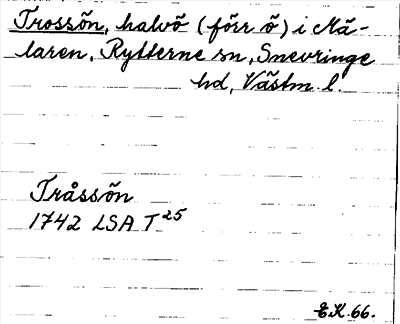 Trossön, halvö (förr ö) i Mä-
laren, Rytterne sn, Snevringe
hd, Västm. l.
Tråssön
1742 LSA T 25
E.K. 66.